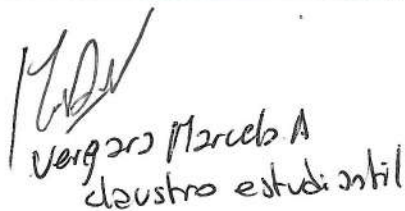 Vergara Marcelo A
claustro estudiantil